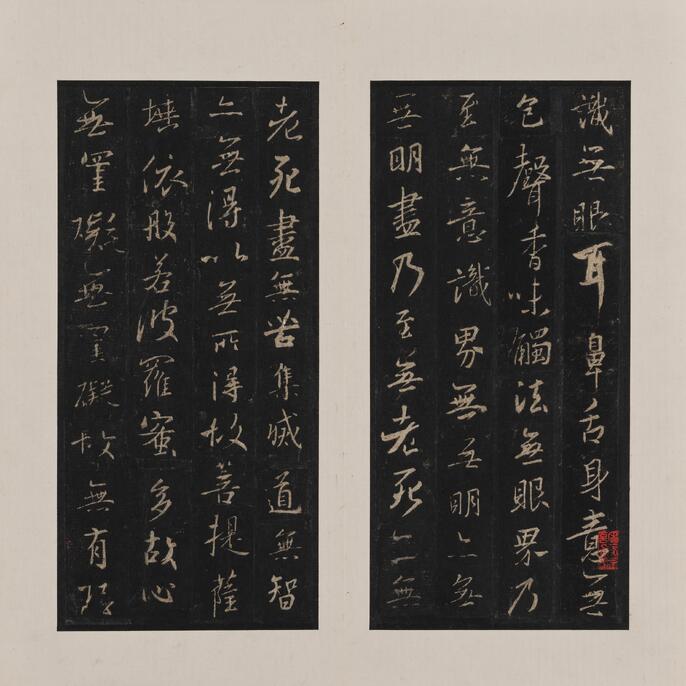 識無眼耳鼻舌身意無
色聲香味觸法無眼界乃
至無意識界無無明亦無
無明盡乃至無老死亦無
老死盡無苦集滅道無智
亦無得以無所得故菩提薩
埵依般若波羅蜜多故心
無罣礙無罣礙故無有恐